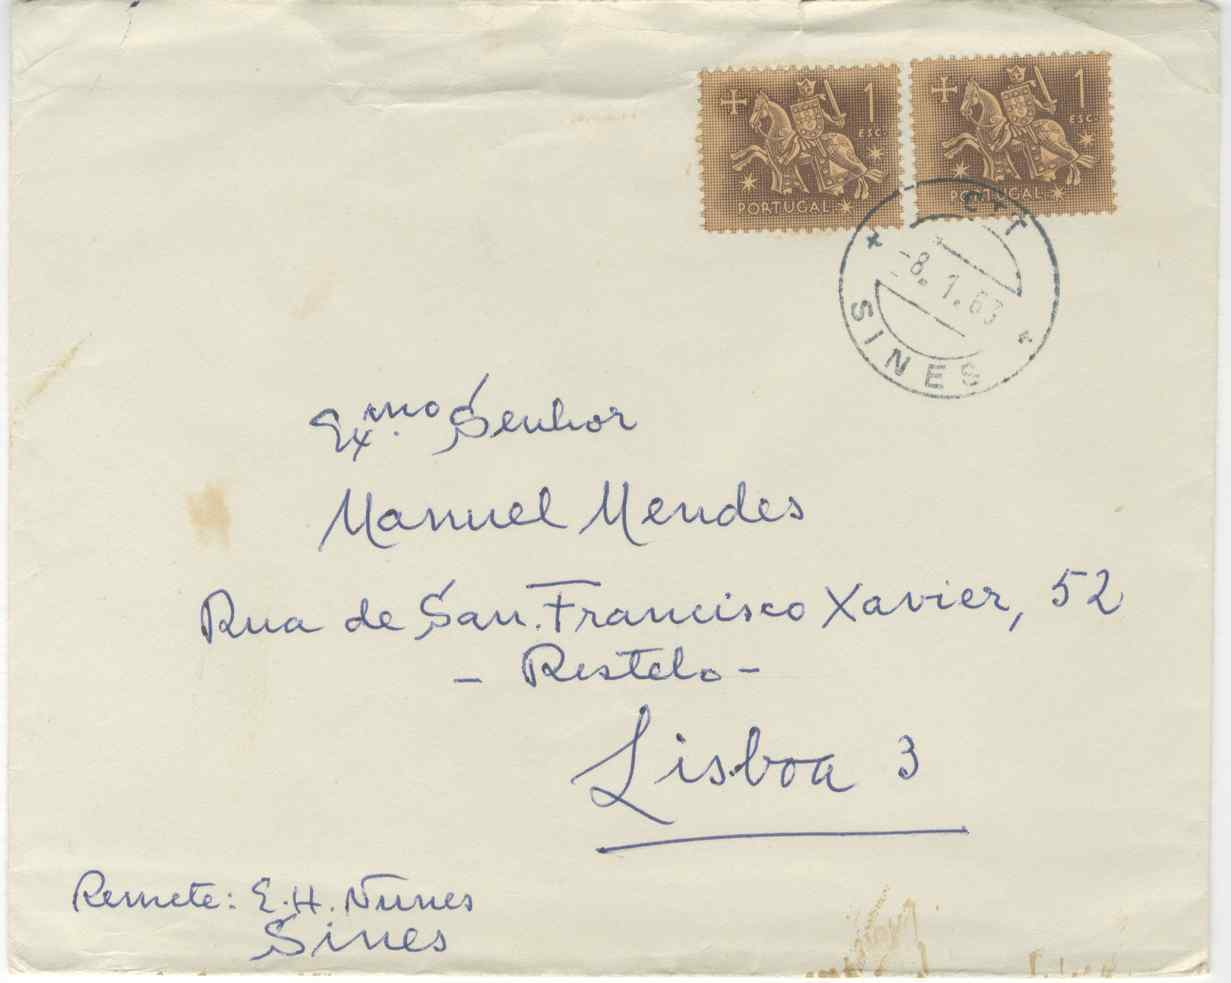 1
ESC.
PORTUGAL
1
ESC.
PORTUGAL
CTT
-8.1.63
SINES
Exmo. Senhor
Manuel Mendes
Rua de San. Francisco Xavier, 52
- Restelo -
Lisboa 3
Remete: E. H. Nunes
Sines